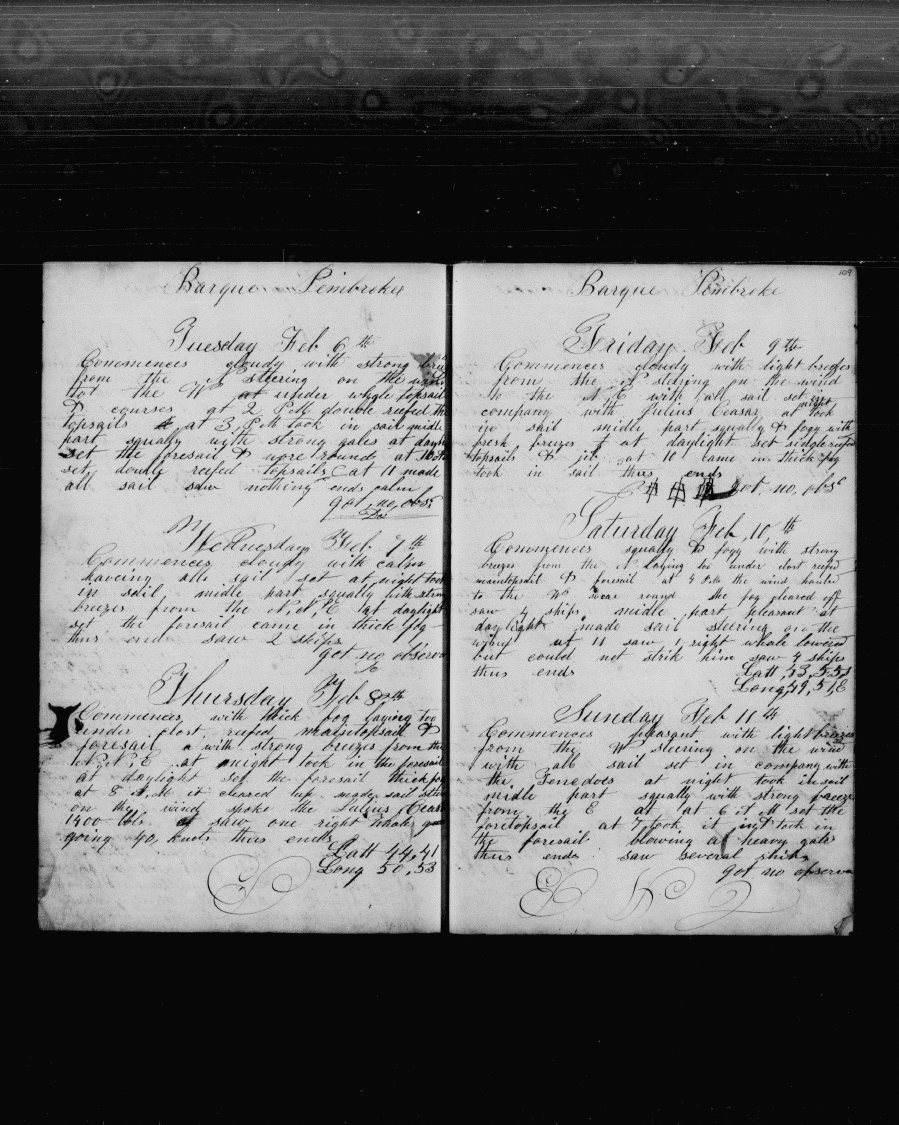 Barque Pembroke
Tuesday Feb 6th
Commences cloudy with strong
from the N Steering on the wind
tot the W at under whole topsails
& courses at 2 P M double reefed the
topsails at 3 P M took in sail midle
part squally with strong gales at dayli
set the foresail & wore round at 10
set double reefed topsails at 11 made
all sail saw nothing ends calm
got no obs
Wednesday Feb 7th
Commences cloudy with calm
haveing all sail set at night took
in sail midle part squally with strong
breezes from the N N E at daylight
set the foresail came in thick fog
thus ends saw 2 ships
got no observa
Thursday Feb 8th
Commences with thick fog laying too
under clost reefed maintopsail &
foresail a with strong breezes from the
N N E at night took in the foresail
at daylight set the foresail thick fog
at 8 A M it cleard up made sail
on the wind spoke the Julius Ceasar
1400 bbls saw one right whale
going 40 knots thus ends
Latt 44,41
Long 50,53
109
Barque Pembroke
Friday Feb 9th
Commences cloudy with light breezes
from the N steering on the wind
to the N E with all sail set in
company with Julius Ceasar at night took
in sail midle part squally & fogg with
fresh breezes at daylight set single reefed
topsails & jib at 10 came in thick fog
took in sail thus ends
got no obs
Saturday Feb 10th
Commences squally & fogg with strong
breezes from the N laying too under clost reefed
maintopsail & foresail at 4 P M the wind hauled
to the W wore round the fog cleared off
saw 4 ships midle part pleasant at
daylight made sail steering on the
wind at 11 saw 1 right whale lowered
but could not strik him saw 4 ships
thus ends Latt 43,53
Long 49,51 E
Sunday Feb 11th
Commences pleasant with light breezes
from the W steering on the wind
with all sail set in company with
the at night took in sail
midle part squally with strong breeze
from the E at at 6 A M set the
foretopsail at 7 took it in took in
the foresail blowing a heavy gale
thus ends saw several ships
got no observa